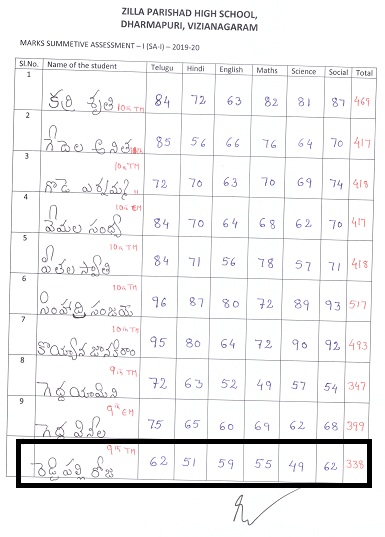 ZILLA PARISHAD HIGH SCHOOL,
DHARMAPURI, VIZIANAGARAM
MARKS SUMMETIVE ASSESSMENT – I (SA-I) – 2019-20
Sl.No. Name of the student Telugu Hindi English Maths Science Social Total
1 కర్రి శృతి 10th TM 84 72 63 82 81 87 469
2 గేదెల అనిత 85 56 66 76 64 70 417
3 10th TM 72 70 63 70 69 74 418
4 వేమల సంధ్య 10th EM 84 70 64 68 62 70 417
5 పీతల స్వాతి 10th TM 84 71 56 78 57 71 418
6 సింహాద్రి సంజయ్ 10th TM 96 87 80 72 89 93 517
7 కొయ్యాన జానకిరాం 10th TM 95 80 64 72 90 92 493
8 గెద్ద యామిని 9th TM 72 63 52 49 57 54 347
9 గెద్ద 9th EM 75 65 60 69 62 68 399
రెడ్డిపల్లి రోజా 9th TM 62 51 59 55 49 62 338